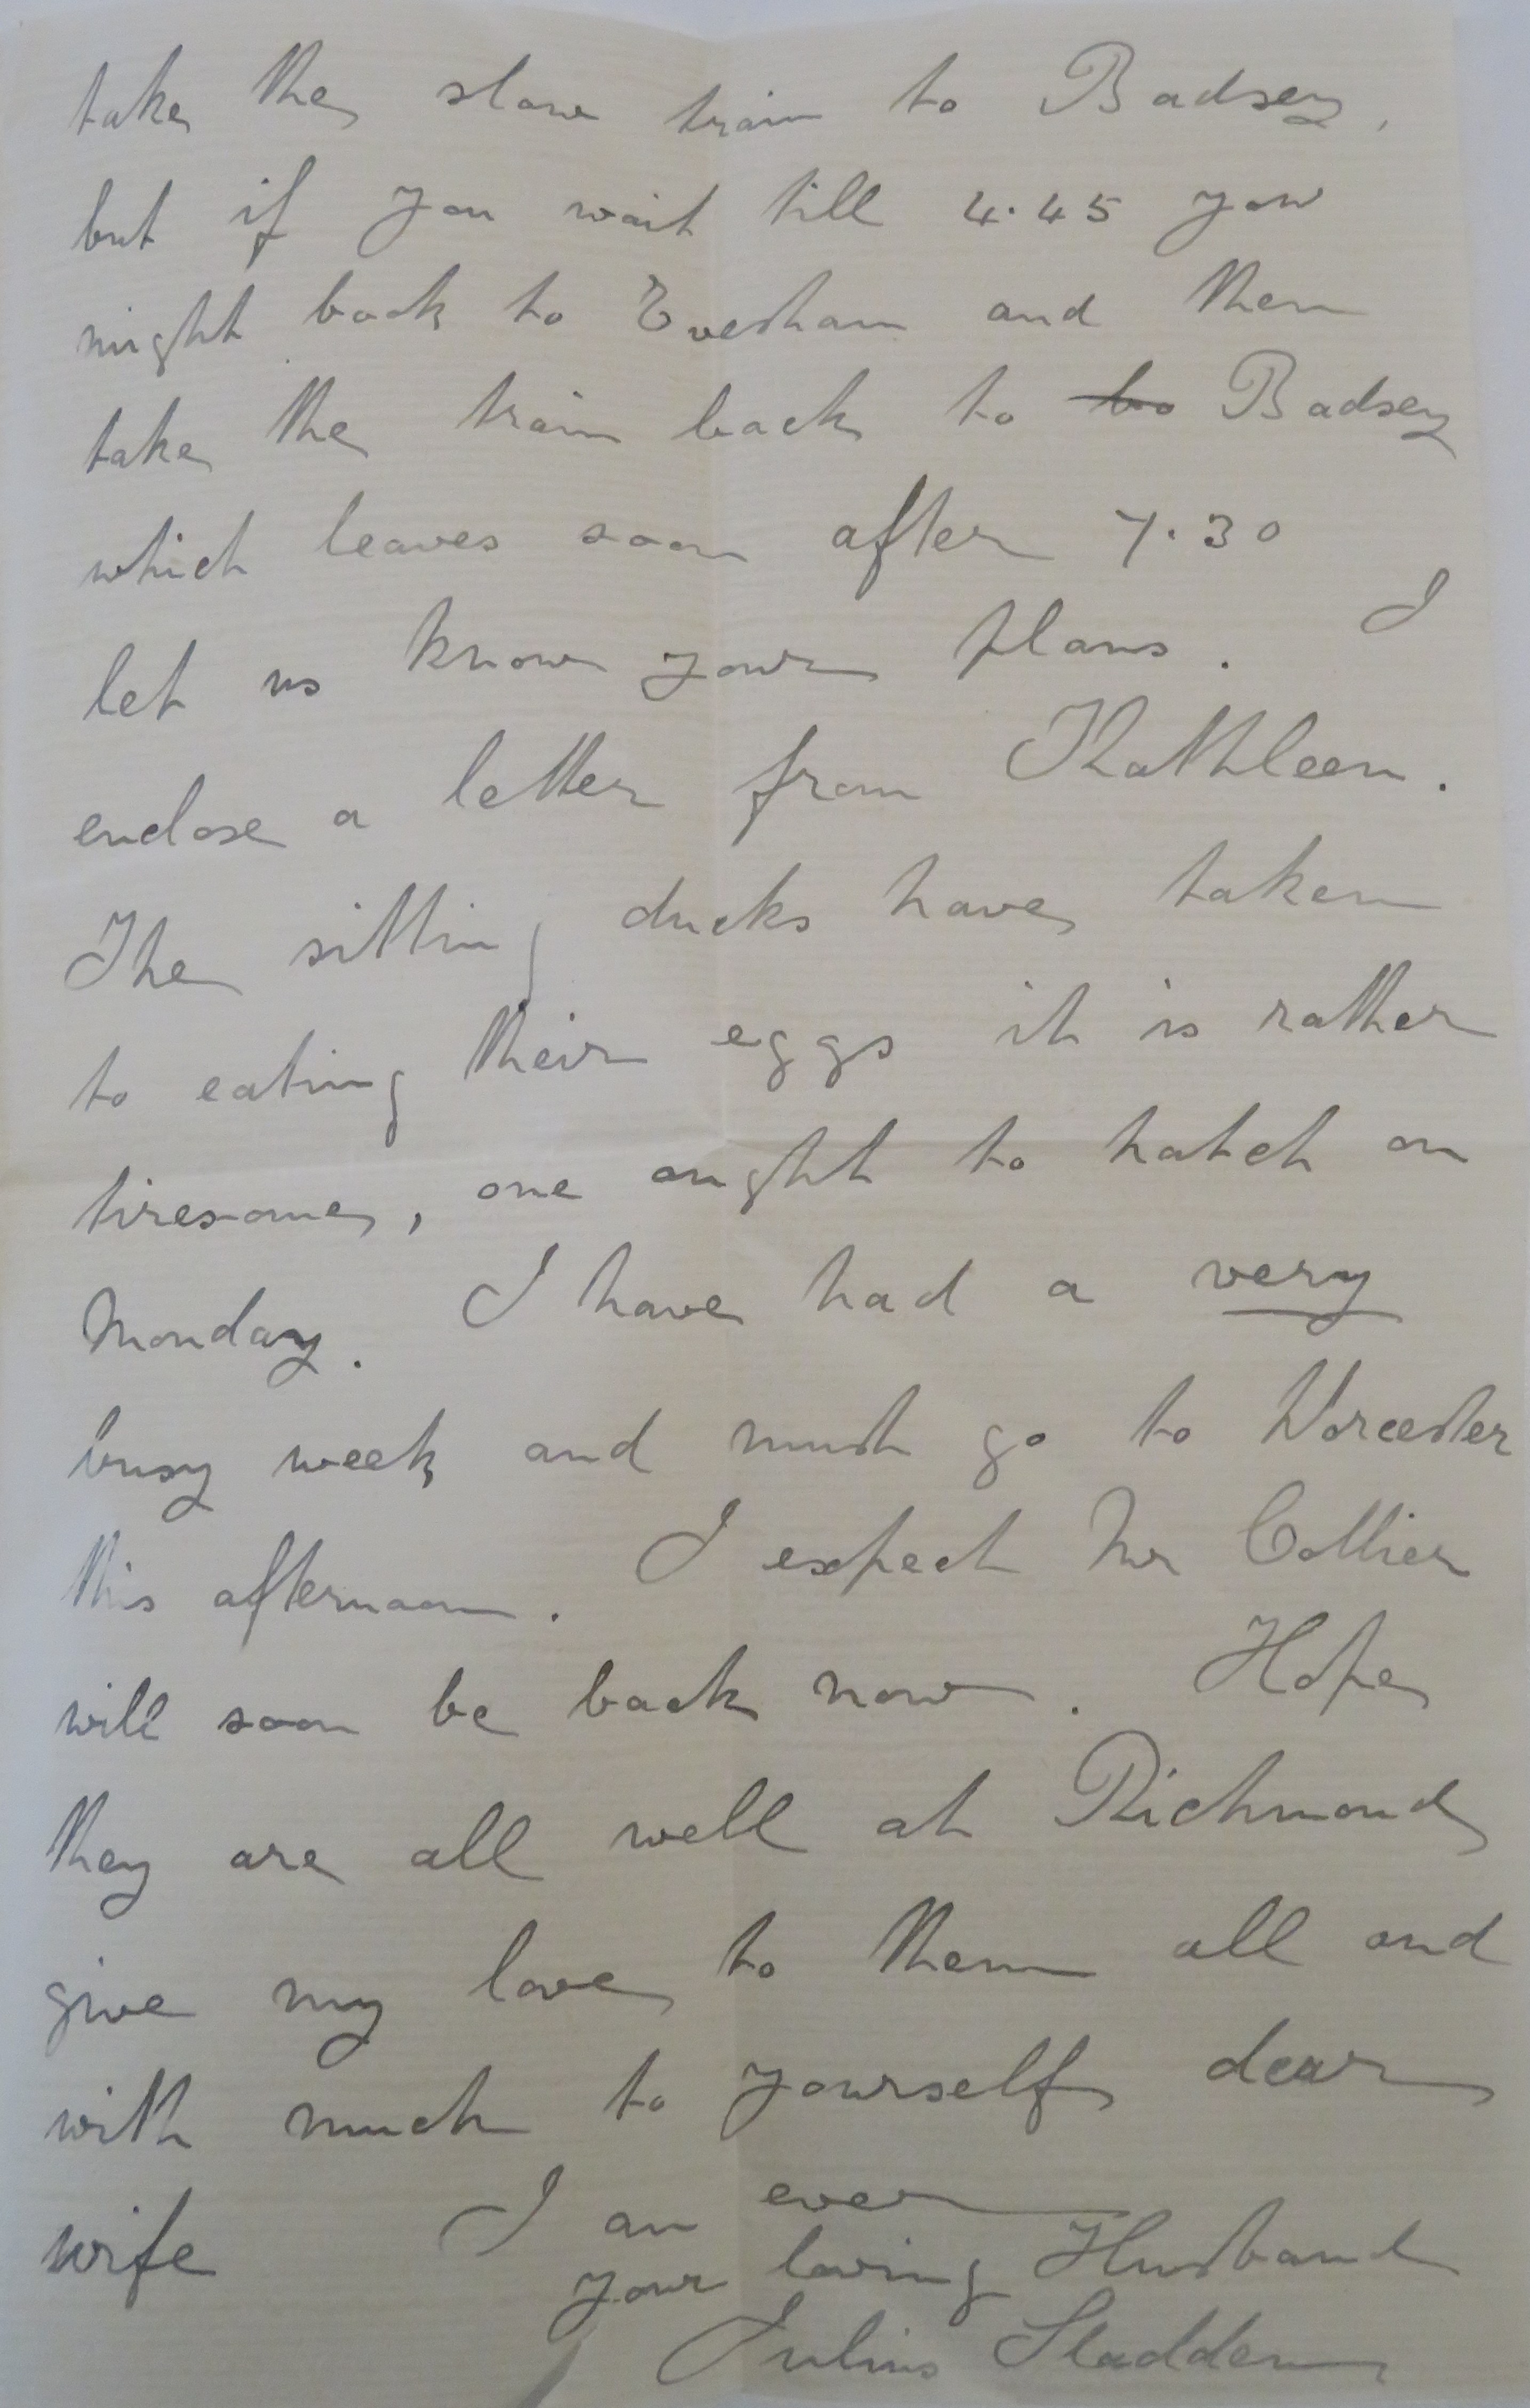 take the slow train to Badsey,
but if you wait till 4.45 you
might book to Evesham and then
take the train back to bo Badsey
which leaves soon after 7.30
let us know your plans. I
enclose a letter from Kathleen.
The sitting ducks have taken
to eating their eggs it is rather
tiresome, one ought to hatch on
Monday. I have had a very
busy week and must go to Worcester
this afternoon. I expect Mr Collier
will soon be back now. Hope
they are all well at Richmond
give my love to them all and
with much to yourself dear
wife I am ever
your loving Husband
Julius Sladden